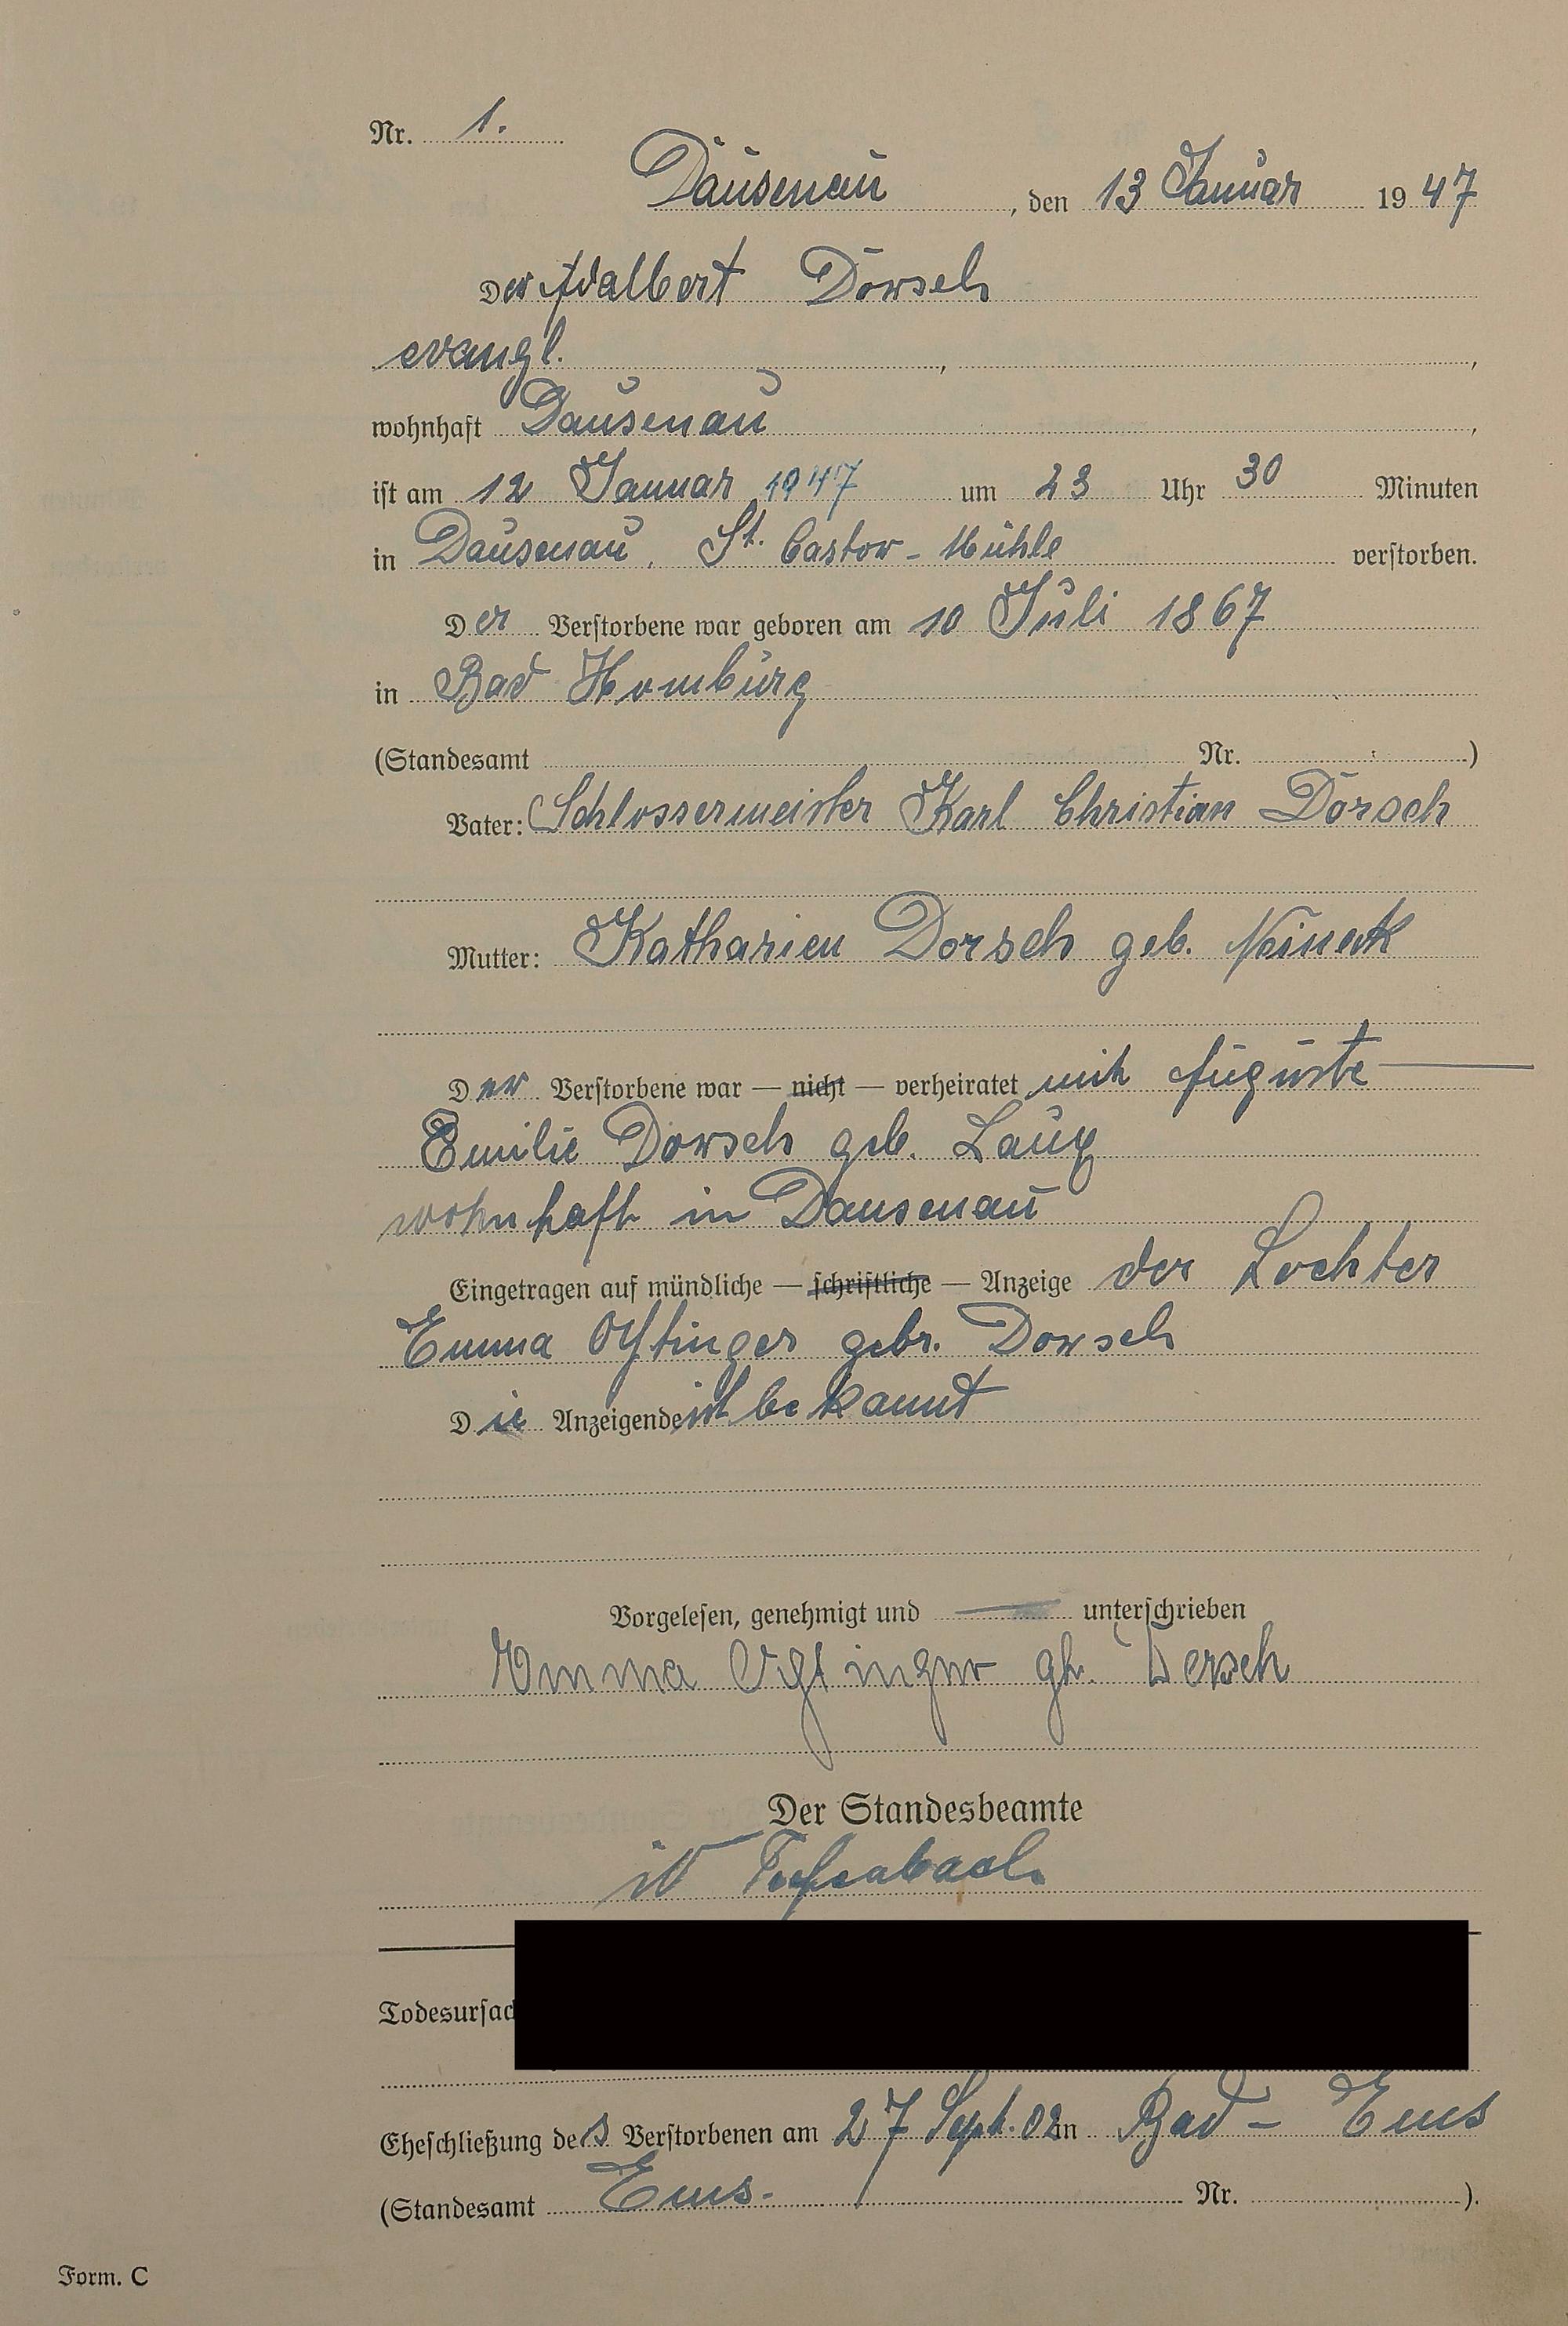 Nr. 1.
Dausenau, den 13 Januar 1947
Der Adalbert Dorsch
evangl. , ,
wohnhaft Dausenau ,
ist am 12 Januar 1947 um 23 Uhr 30 Minuten
in Dausenau, St. Castor-Mühle verstorben.
Der Verstorbene war geboren am 10 Juli 1867
in Bad Homburg
(Standesamt Nr. )
Vater: Schlossermeister Karl Christian Dorsch
Mutter: Katharien Dorsch geb.
Der Verstorbene war — nicht — verheiratet mit Auguste
Emilie Dorsch geb.
wohnhaft in Dausenau
Eingetragen auf mündliche — schriftliche — Anzeige der Tochter
Emma Oftinger gebr. Dorsch
Die Anzeigende ist bekannt
Vorgelesen, genehmigt und — unterschrieben
Emma gb. Dorsch
Der Standesbeamte
Todesursac
Eheschließung des Verstorbenen am 27 Sept. 02 in Bad-Ems
(Standesamt Ems. Nr. ).
Form. C